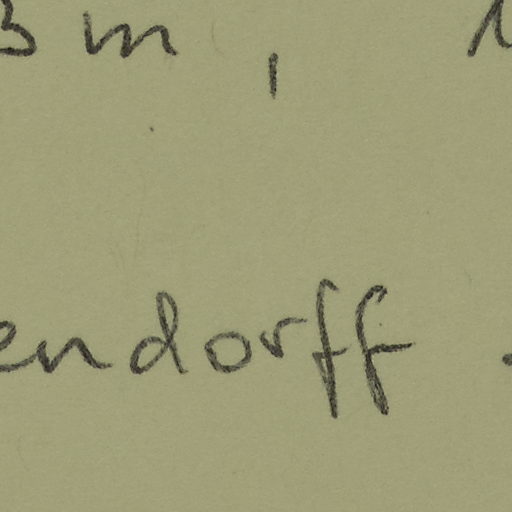 3 m , 1
endorff .